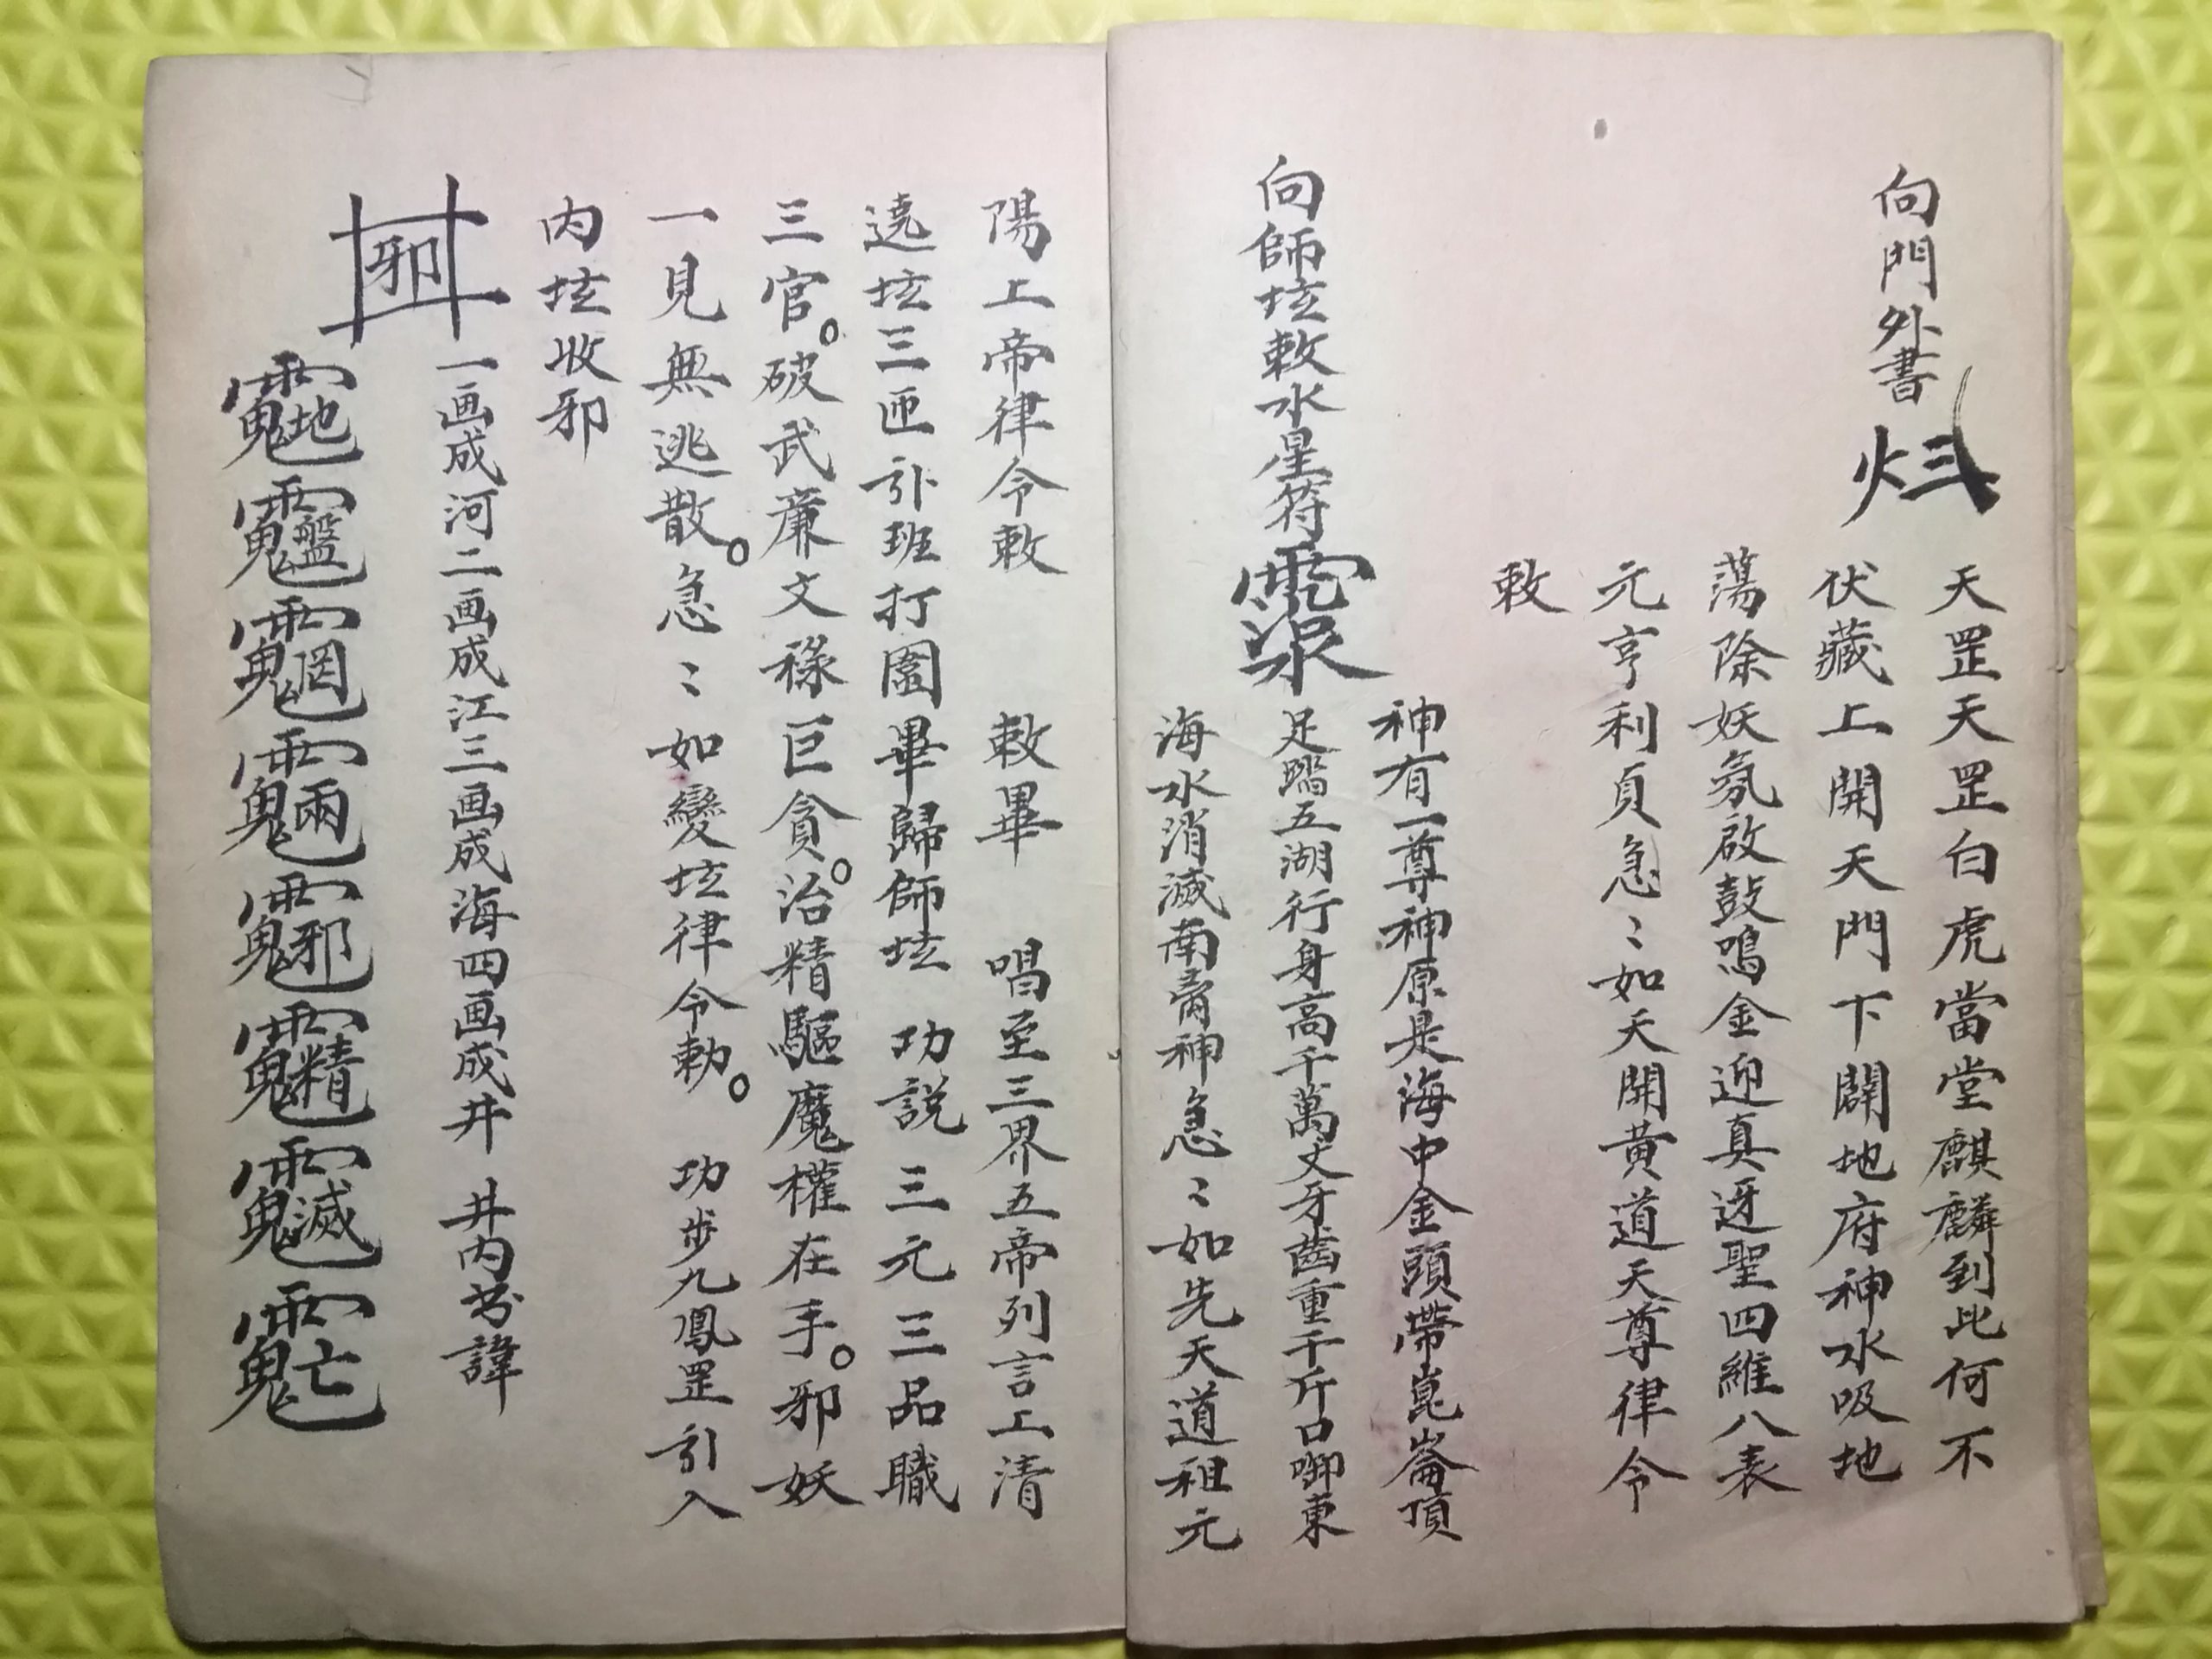 向門外書
天罡天罡白虎當堂麒麟到此何不
伏藏上開天門下闢地府神水吸地
蕩除妖氛啟鼓鳴金迎真迓聖四維八表
元亨利貞急〻如天開黃道天尊律令
敕
向師垓敕水星符
神有一尊神原是海中金頭帶崑崙頂
足踏五湖行身高千萬丈牙齒重千斤口啣東
海水消滅南齊神急〻如先天道祖元
陽上帝律令敕 敕畢 唱至三界五帝列言上清
遶垓三匝引班打圍畢歸師垓 功說 三元三品職
三官。破武廉文祿巨貪。治精驅魔權在手。邪妖
一見無逃散。急〻如變垓律令勅。 功步九鳳罡引入
內垓收邪
邪
一画成河二画成江三画成海四画成井 井內書諱